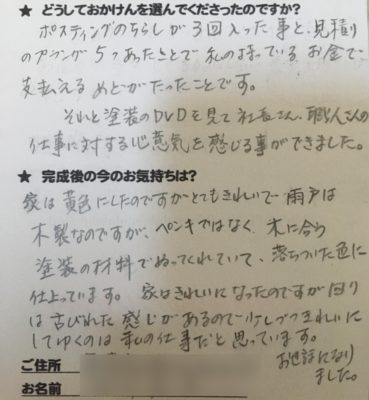 ★ どうしておかけんを選んでくださったのですか?
ポスティングのちらしが3回入った事と、見積り
のプランが5つあったことで私の持っているお金で
支払えるめどがたったことです。
それと塗装のDVDを見て社長さん、職人さんの
仕事に対する心意気を感じる事ができました。
★ 完成後の今のお気持ちは?
家は黄色にしたのですがとてもきれいで雨戸は
木製なのですが、ペンキではなく、木に合う
塗装の材料でぬってくれていて、落ちついた色に
仕上っています。家はきれいになったのですが回り
は古びれた感じがあるので少しづつきれいに
してゆくのは私の仕事だと思っています。
お世話になり
ました。
ご住所
お名前